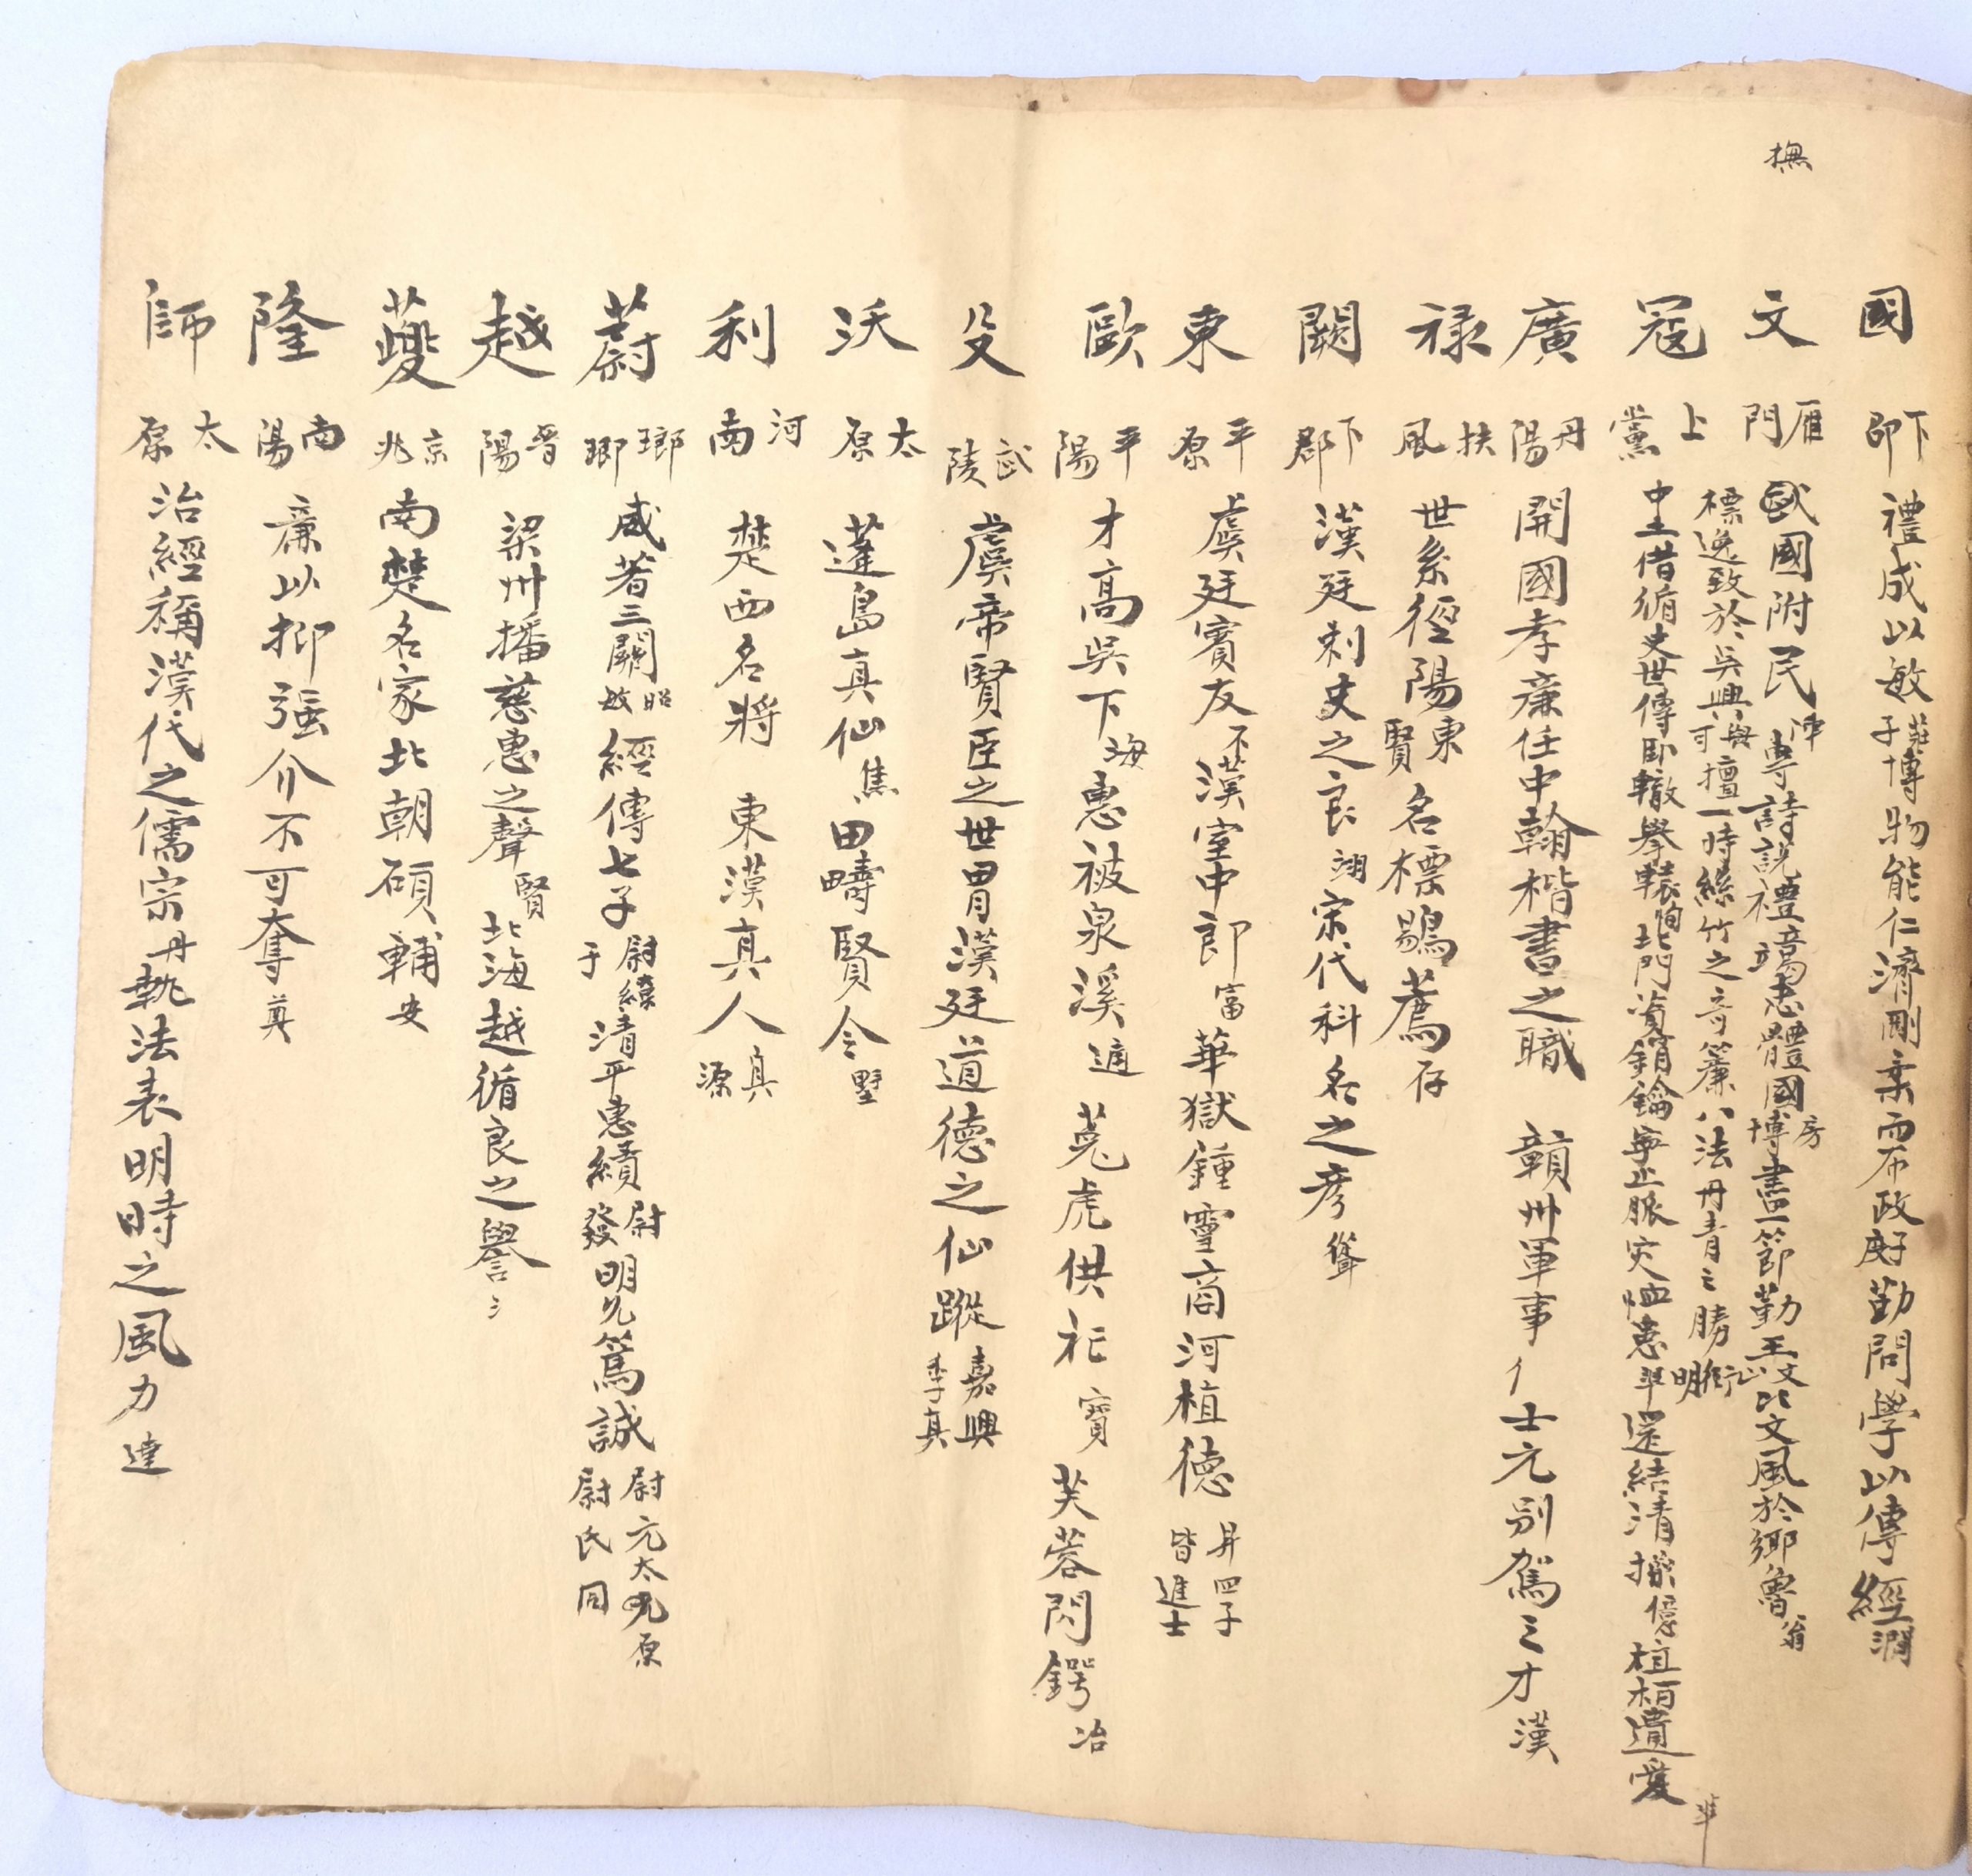 撫
國 下邳 禮成以敏 莊子 博物能仁濟剛柔而布政 好勤問學以傳經 潤
文 雁門 國附民 專詩說禮 竭忠體國 博房 畫一節勤王 文 比文風於鄉魯 翁
標逸致於吳興 與可 擅一時絲竹之音 簾 八法丹青之勝 衡山 明
寇 上黨 中土借循史世傳臥轍攀轅 恂 北門資鎖鑰 每止賑災恤患 準 還結清 植柏遺愛 準
廣 丹陽 開國孝廉任中翰楷書之職 贑州軍事 士元別駕之才 漢
祿 扶風 世系徑陽 東賢 名標鶚薦 存
闕 下郡 漢廷刺史之良 翊 宋代科名之彥
東 平原 虞廷賓友 不 漢室中郎 富 華獄鍾靈商河植德 昇四子皆進士
歐 平陽 才高吳下 海 惠被泉溪 適 菟虎供祀 寶 芙蓉閃鍔 冶
殳 武陵 虞帝賢臣之世胄漢廷道德之仙蹤 嘉興季真
沃 太原 蓬島真仙 焦 田疇賢令 墅
利 河南 楚西名將 東漢真人 真源
蔚 瑯琊 咸著三關 昭敏 經傳七子 尉繚于 清平惠績 尉發 明允篤誠 尉元太原 尉氏同
越 晉陽 梁州播慈惠之聲 賢 北海越循良之譽 ミ
夔 京兆 南楚名家北朝碩輔 安
隆 南陽 廉以抑强介不可奪 英
師 太原 治經稱漢代之儒宗 丹 執法表明時之風力 逵